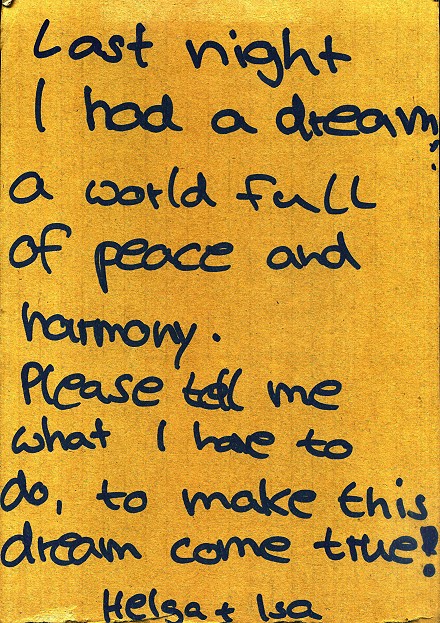 Last night
I had a dream:
a world full
of peace and
harmony.
Please tell me
what I have to
do, to make this
dream come true!
Helga + Isa